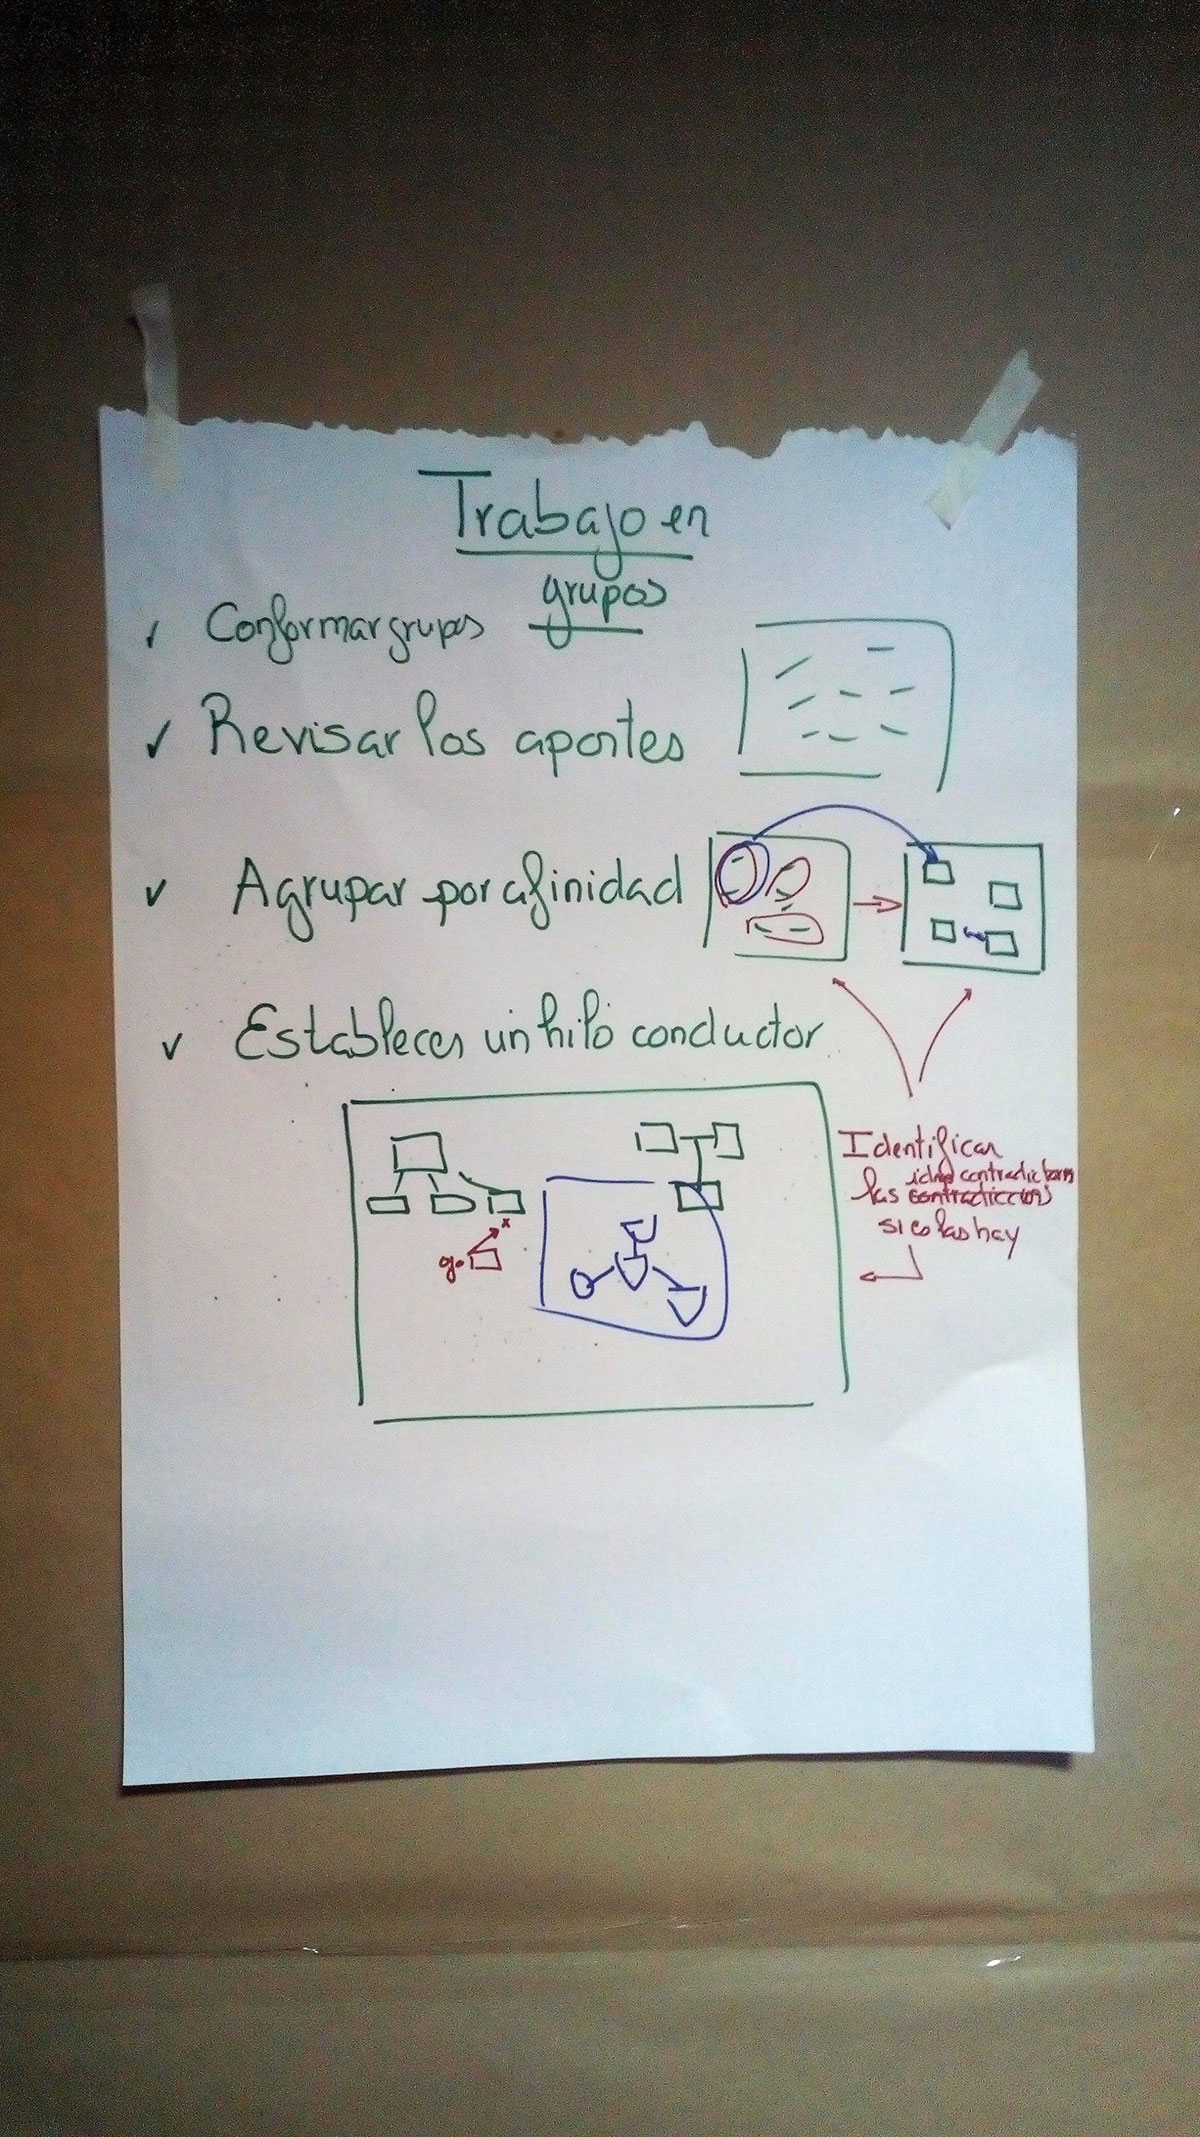 Trabajo en
grupos
✓ Conformar grupos
✓ Revisar los aportes
✓ Agrupar por afinidad
✓ Establecer un hilo conductor
Identificar
las contradicciones
si es las hay